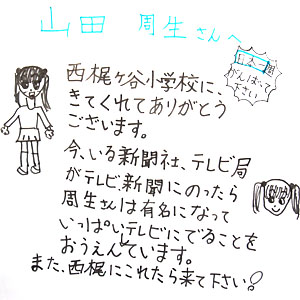 山田 周生さんへ
日本一周
がんばって
下さい
西梶ヶ谷小学校に、
きてくれてありがとう
ございます。
今、いる新聞社、テレビ局
がテレビ新聞にのったら
周生さんは有名になって
いっぱいテレビにでることを
おうえんしています。
また、西梶にこれたら来て下さい!